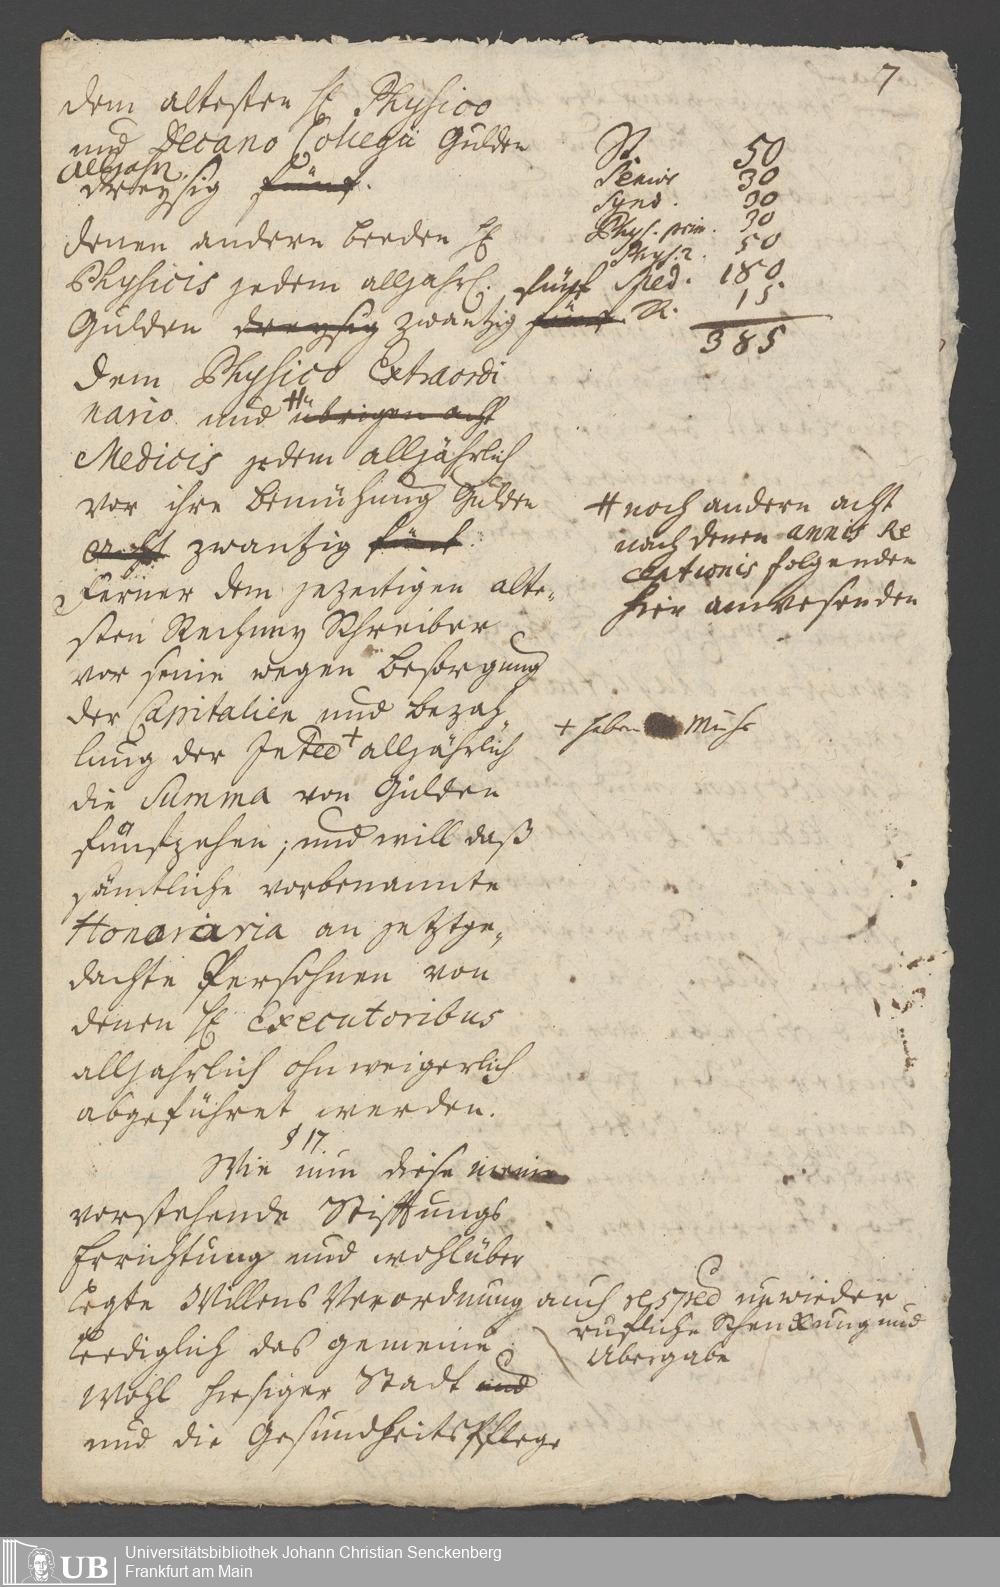 7
dem altesten H. Physico
und Decano Collegii Gulden
Alljahr.
dreysig fünf.
denen andern beeden H.
Physicis jedem alljahrl. fünf
Gulden dreysig zwantzig fünf
dem Physico Extraordi
nario und # übrigen acht
Medicis jedem alljährlich
vor ihre bemühung Gulden
acht zwantzig fünf.
Ferner dem jezeitigen alte-
sten Rechney Schreiber
vor seine wegen besorgung
der Capitalien und bezah
lung der + alljährlich
die Summa von Gulden
fünfzehen; und will daß
sämtliche vorbenannte
Honoraria an jetztge-
dachte Persohnen von
denen H. Executoribus
alljahrlich ohnweigerlich
abgeführet werden.
§ 17.
Wie nun diese meine
vorstehende Stifftungs
Errichtung und wohlüber
legte Willens Verordnung
lediglich das gemeine
Wohl hiesiger Stadt und
und die Gesundheitspflege
50
Senior 30
Synd. 30
Phys. prim. 30
Phys. 2. 50
Med. 180.
R. 15
385
# noch andern acht
nach denen annis Re
ceptionis folgenden
hier anwesenden
+ haben Mühe
auch resped unwieder
rufliche Schenckung und
Übergabe
UB
Universitätsbibliothek Johann Christian Senckenberg
Frankfurt am Main